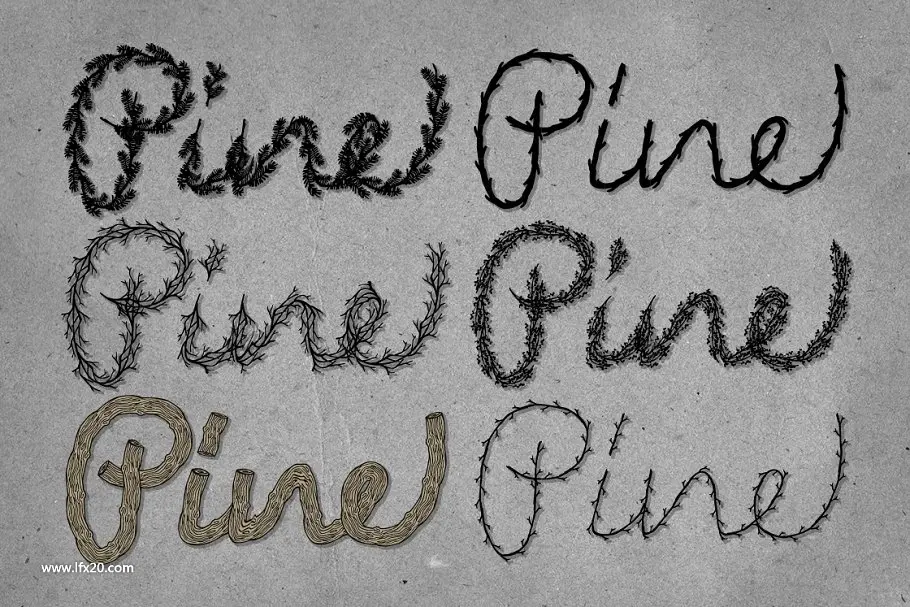 Pine Pine
Pine Pine
Pine Pine
www.lfx20.com